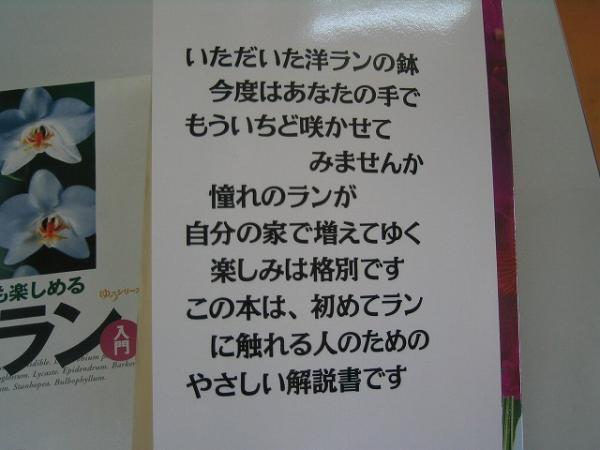 いただいた洋ランの鉢
今度はあなたの手で
もういちど咲かせて
みませんか
憧れのランが
自分の家で増えてゆく
楽しみは格別です
この本は、初めてラン
に触れる人のための
やさしい解説書です
も楽しめる
ゆうシリーズ
ラン
入門
Lycaste. Epidendrum. Barker
Stanhopea. Bulbophyllum.